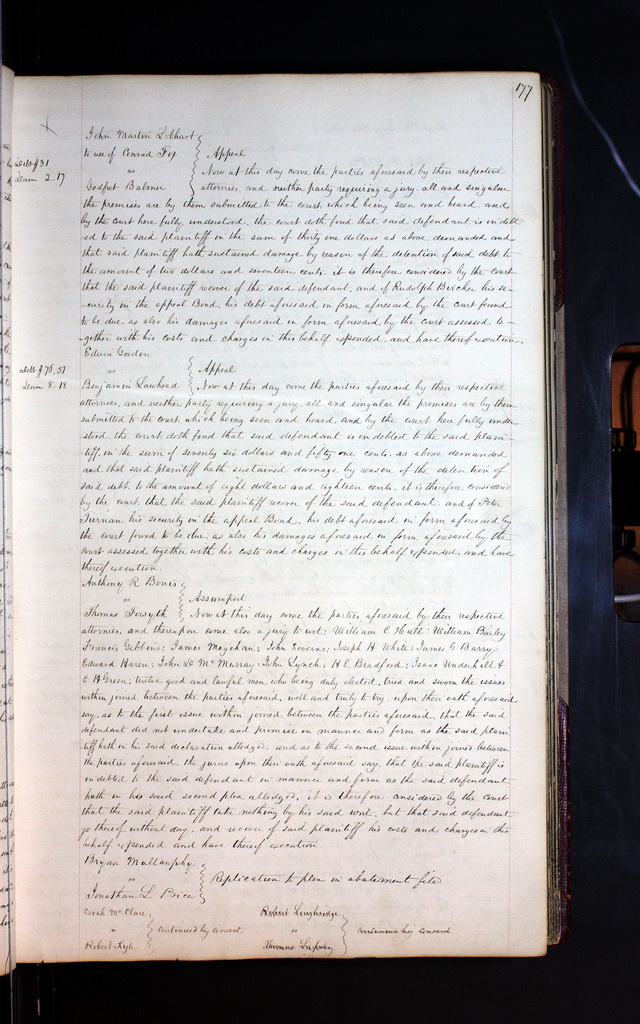 177
John Martin Lebhart
to use of Conrad Fox } Appeal
Debt $31
Dam 2.17
vs Now at this day come the parties aforesaid by their respective
Godfrid Balmer attornies, and neither party requiring a jury, all and singular
the premises are by them submitted to the court, which being seen and heard, and
by the court here fully understood, the court doth find that said defendant is indebt
ed to the said plaintiff in the sum of thirty one dollars as above demanded, and
that said plaintiff hath sustained damage by reason of the detention of said debt to
the amount of two dollars and seventeen cents, it is therefore considered by the court
that the said plaintiff recover of the said defendant, and of Rudolph Bircher his se-
curity in the appeal Bond, his debt aforesaid in form aforesaid by the court found
to be due, as also his damages aforesaid in form aforesaid by the court assessed to-
gether with his costs and charges in this behalf expended, and have thereof execution.
Edwin Gordon
Debt $76.51
vs } Appeal
Dam 8.18
Benjamin Lawhead Now at this day come the parties aforesaid by their respective
attornies, and neither party requiring a jury, all and singular the premises are by them
submitted to the court, which being seen and heard, and by the court here fully under
stood, the court doth find that said defendant is indebted to the said plain-
tiff, in the sum of seventy six dollars and fifty one cents, as above demanded
and that said plaintiff hath sustained damage by reason of the detention of
said debt, to the amount of eight dollars and eighteen cents, it is therefore considered
by the court, that the said plaintiff recover of the said defendant, and of Peter
Tiernan his security in the appeal Bond, his debt aforesaid in form aforesaid by
the court found to be due, as also his damages aforesaid in form aforesaid by the
court assessed together with his costs and charges in this behalf expended, and have
thereof execution.
Anthony R Bouis
vs } Assumpsit
Thomas Forsyth Now at this day come the parties aforesaid by their respective
attornies, and thereupon come also a jury to wit: William C Hull: William Bailey
Francis Gibbons; James Magehan; John Severns; Joseph H White; James C Barry
Edward Haren; John D Mc Murray; John Lynch; H.E. Bradford; Isaac Underhill &
E H Green; twelve good and lawful men who being duly elected, tried and sworn the issues
within joined between the parties aforesaid, well and truly to try, upon their oath aforesaid
say, as to the first issue within joined between the parties aforesaid, that the said
defendant did not undertake and promise in manner and form as the said plain
tiff hath in his said declaration alledged, and as to the second issue within joined between
the parties aforesaid, the jurors upon their oath aforesaid say, that the said plaintiff is
indebted to the said defendant in manner and form as the said defendant
hath in his said second plea alledged, it is therefore considered by the court
that the said plaintiff take nothing by his said writ, but that said defendant
go thereof without day, and recover of said plaintiff his costs and charges in this
behalf expended and have thereof execution
Bryan Mullanphy
vs } Replication to plea in abatement filed
Jonathan L Price
Sarah Mc Clure Robert Loughridge
vs } Continued by consent vs } Continued by consent
Robert Kyle Thomas